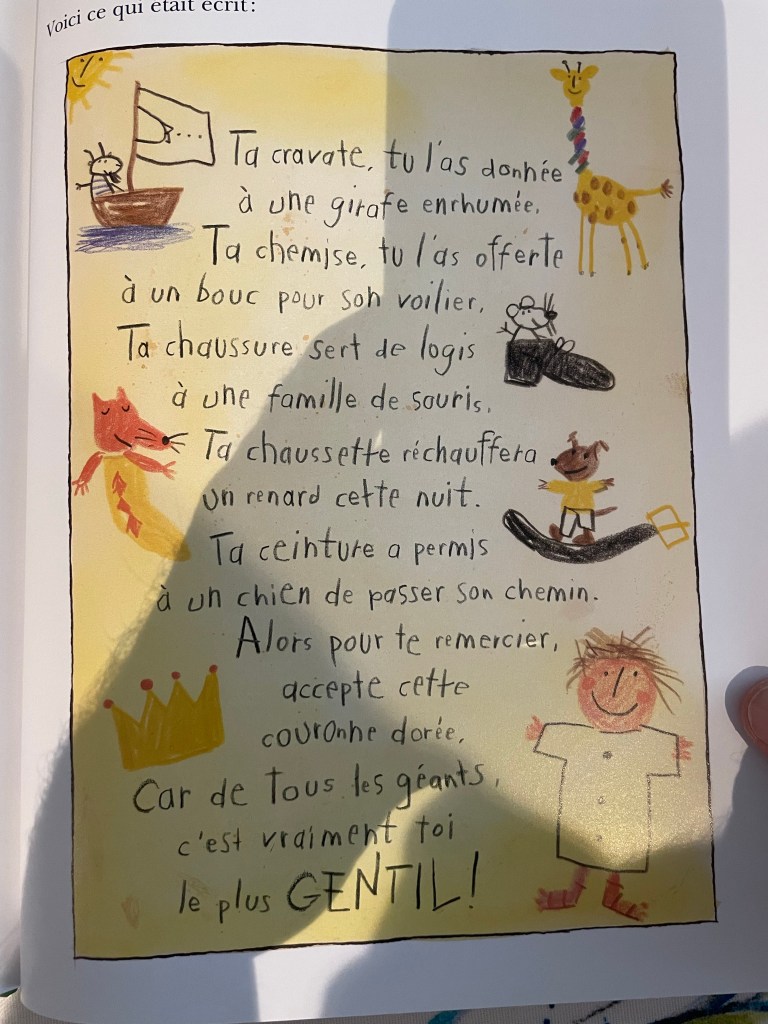 Voici ce qui était écrit :
Ta cravate, tu l'as donnée
à une girafe enrhumée.
Ta chemise, tu l'as offerte
à un bouc pour son voilier,
Ta chaussure sert de logis
à une famille de souris.
Ta chaussette réchauffera
un renard cette nuit.
Ta ceinture a permis
à un chien de passer son chemin.
Alors pour te remercier,
accepte cette
couronne dorée,
Car de tous les géants,
c'est vraiment toi
le plus GENTIL!